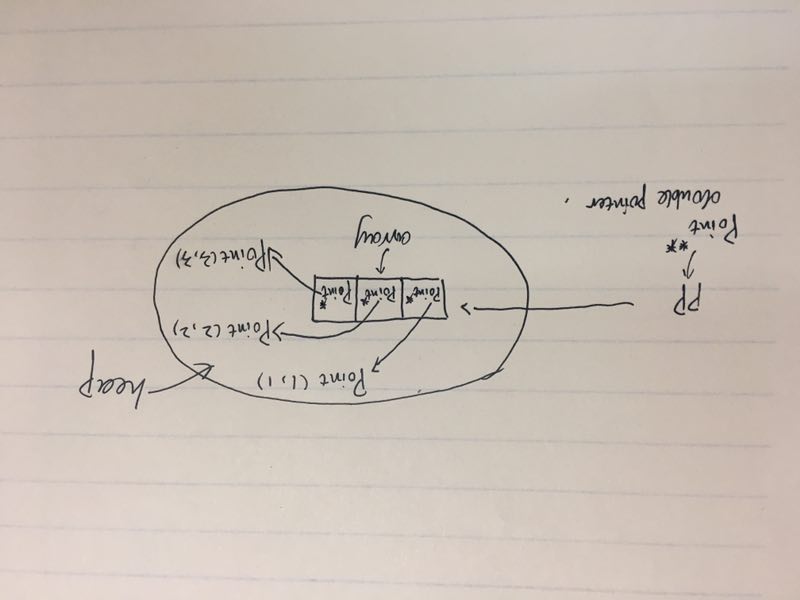 Point (1,1)
heap
Point (2,2)
PP
Point* Point* Point*
Point (3,3)
array
Point**
double pointer.